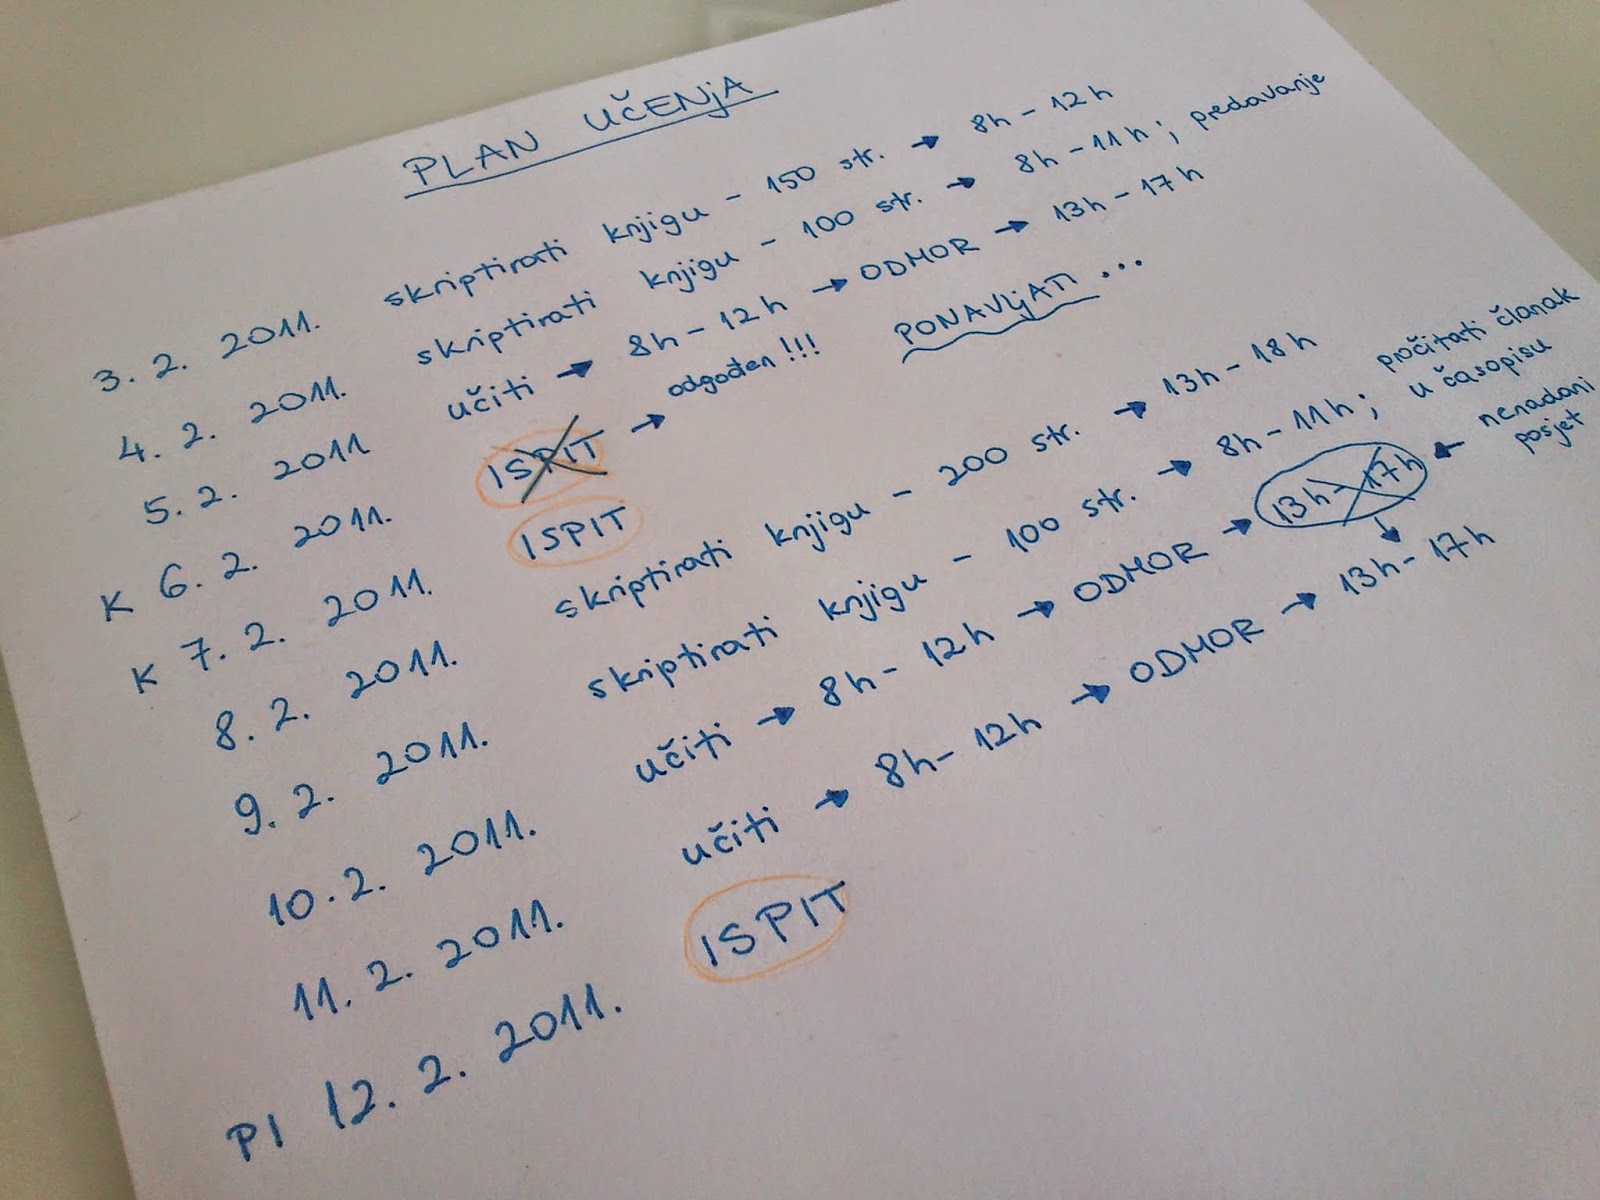 PLAN UČENjA
3. 2. 2011. skriptirati knjigu - 150 str. → 8h - 12h
4. 2. 2011. skriptirati knjigu - 100 str. → 8h - 11h ; predavanje
5. 2. 2011 učiti → 8h - 12h → ODMOR → 13h - 17h
K 6. 2. 2011. ISPIT → odgođen !!! PONAVLjATI ...
K 7. 2. 2011. ISPIT
8. 2. 2011. skriptirati knjigu - 200 str. → 13h - 18h
9. 2. 2011. skriptirati knjigu - 100 str. → 8h - 11h ; pročitati članak
u časopisu
10. 2. 2011. učiti → 8h - 12h → ODMOR → 13h - 17h ← nenadani
posjet
11. 2. 2011. učiti → 8h - 12h → ODMOR → 13h - 17h
PI 12. 2. 2011. ISPIT